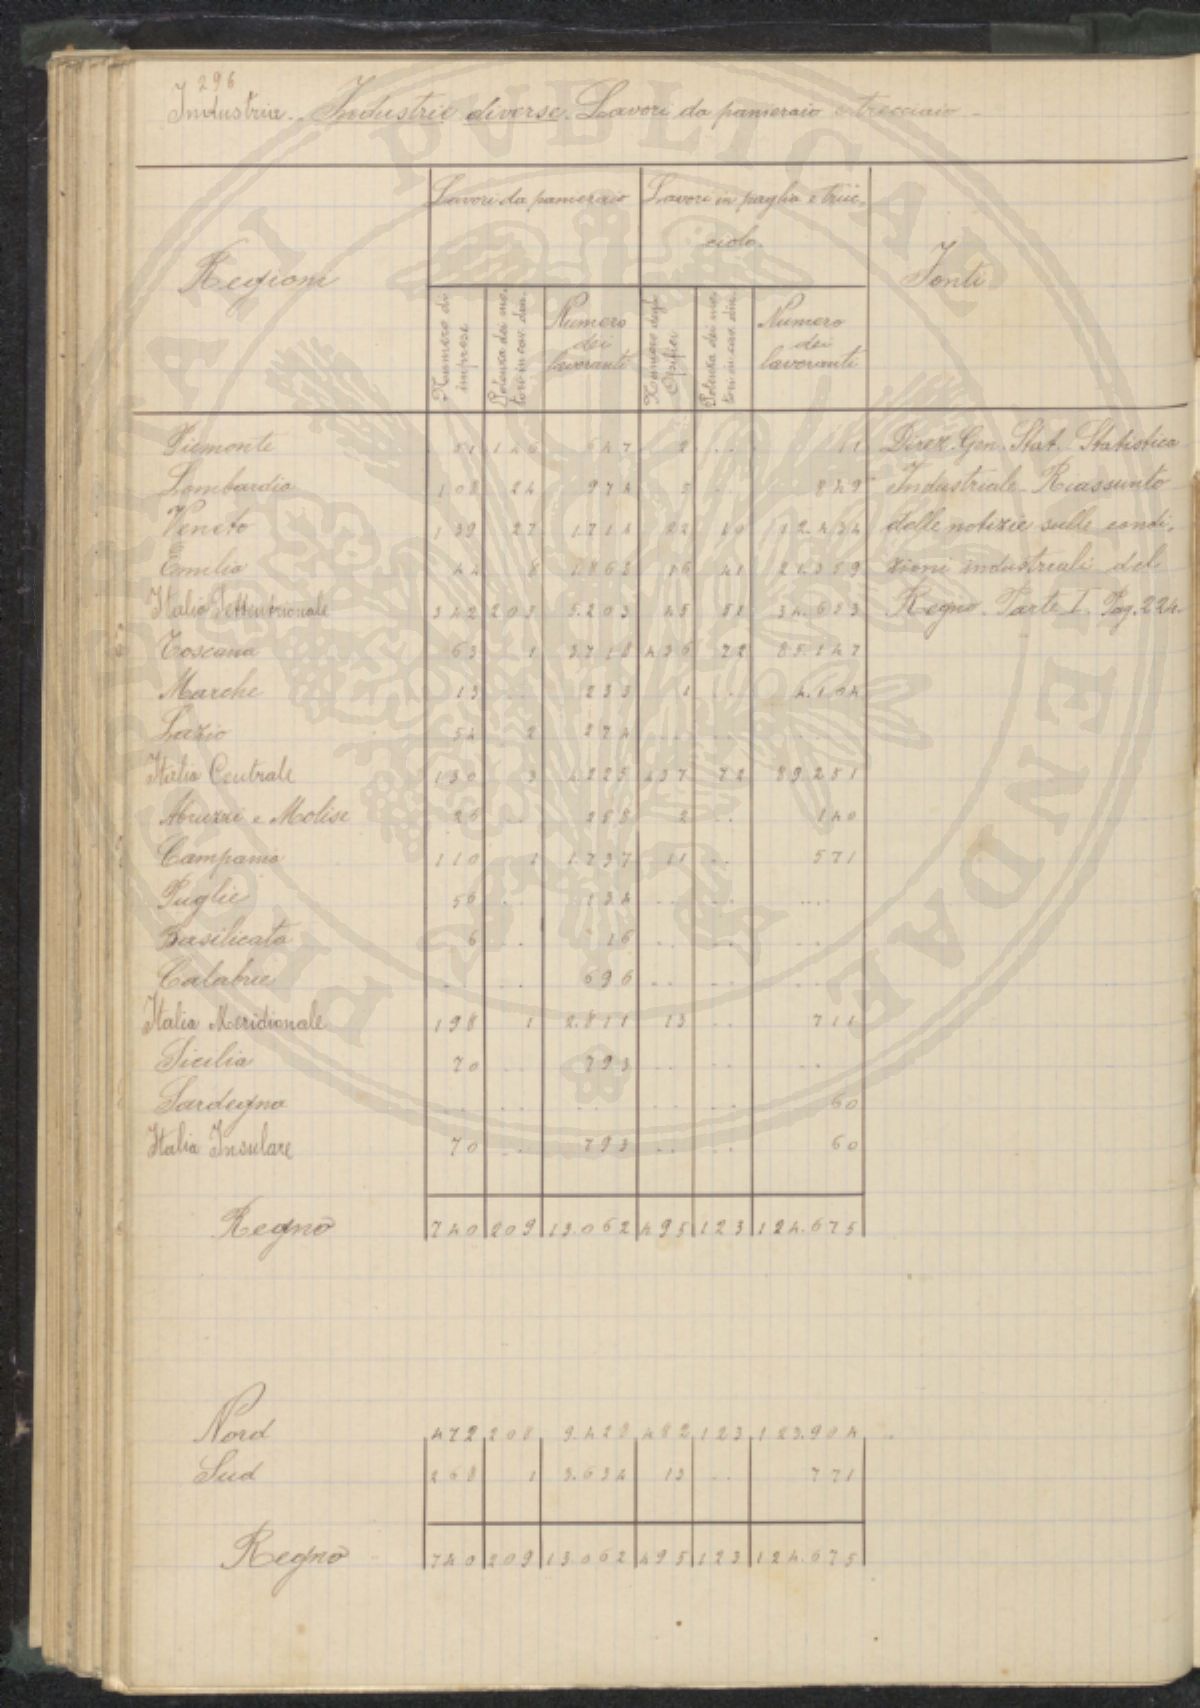 296
Industrie. Industrie diverse. Lavori da panieraio e trecciaio
Regioni
Lavori da panieraio
Lavori in paglia e truc-
ciolo.
Fonti
Numero di
imprese
Potenza dei mo-
tori in cav. din.
Numero
dei
lavoranti
Numero degli
Opifici
Potenza dei mo-
tori in cav. din.
Numero
dei
lavoranti
Piemonte 51 146 647 2 .. 11
Lombardia 108 24 974 5 .. 849
Veneto 139 27 1.714 22 10 12.434
Emilia 44 8 1.868 16 41 21.359
Italia Settentrionale 342 205 5.203 45 51 34.653
Toscana 63 1 3.718 436 72 85.147
Marche 13 .. 233 1 .. 4.104
Lazio 54 2 274 .. .. ..
Italia Centrale 130 3 4.225 437 72 89.251
Abruzzi e Molise 26 .. 288 2 .. 140
Campania 110 1 1.737 11 .. 571
Puglie 56 .. 134 .. .. ....
Basilicata 6 .. 16 .. .. ..
Calabrie .. .. 696 .. .. ..
Italia Meridionale 198 1 2.811 13 .. 711
Sicilia 70 .. 793 .. .. ..
Sardegna .. .. .. .. .. 60
Italia Insulare 70 .. 793 .. .. 60
Regno 740 209 13.062 495 123 124.675
Direz. Gen. Stat. Statistica
Industriale - Riassunto
delle notizie sulle condi-
zioni industriali del
Regno. Parte I. Pag. 224.
Nord 472 208 9.428 482 123 123.904
Sud 268 1 3.634 13 .. 771
Regno 740 209 13062 495 123 124.675